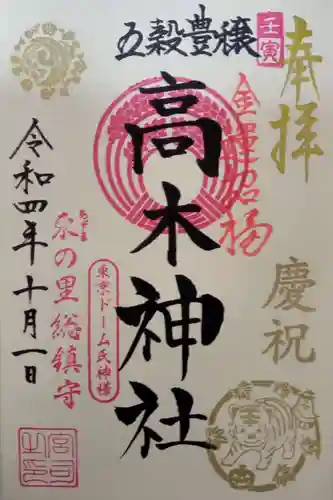 奉拝
慶祝
壬寅
五穀豊穣
金運招福
高木神社
東京ドーム氏神様
の里総鎮守
令和四年十月一日
宮司之印